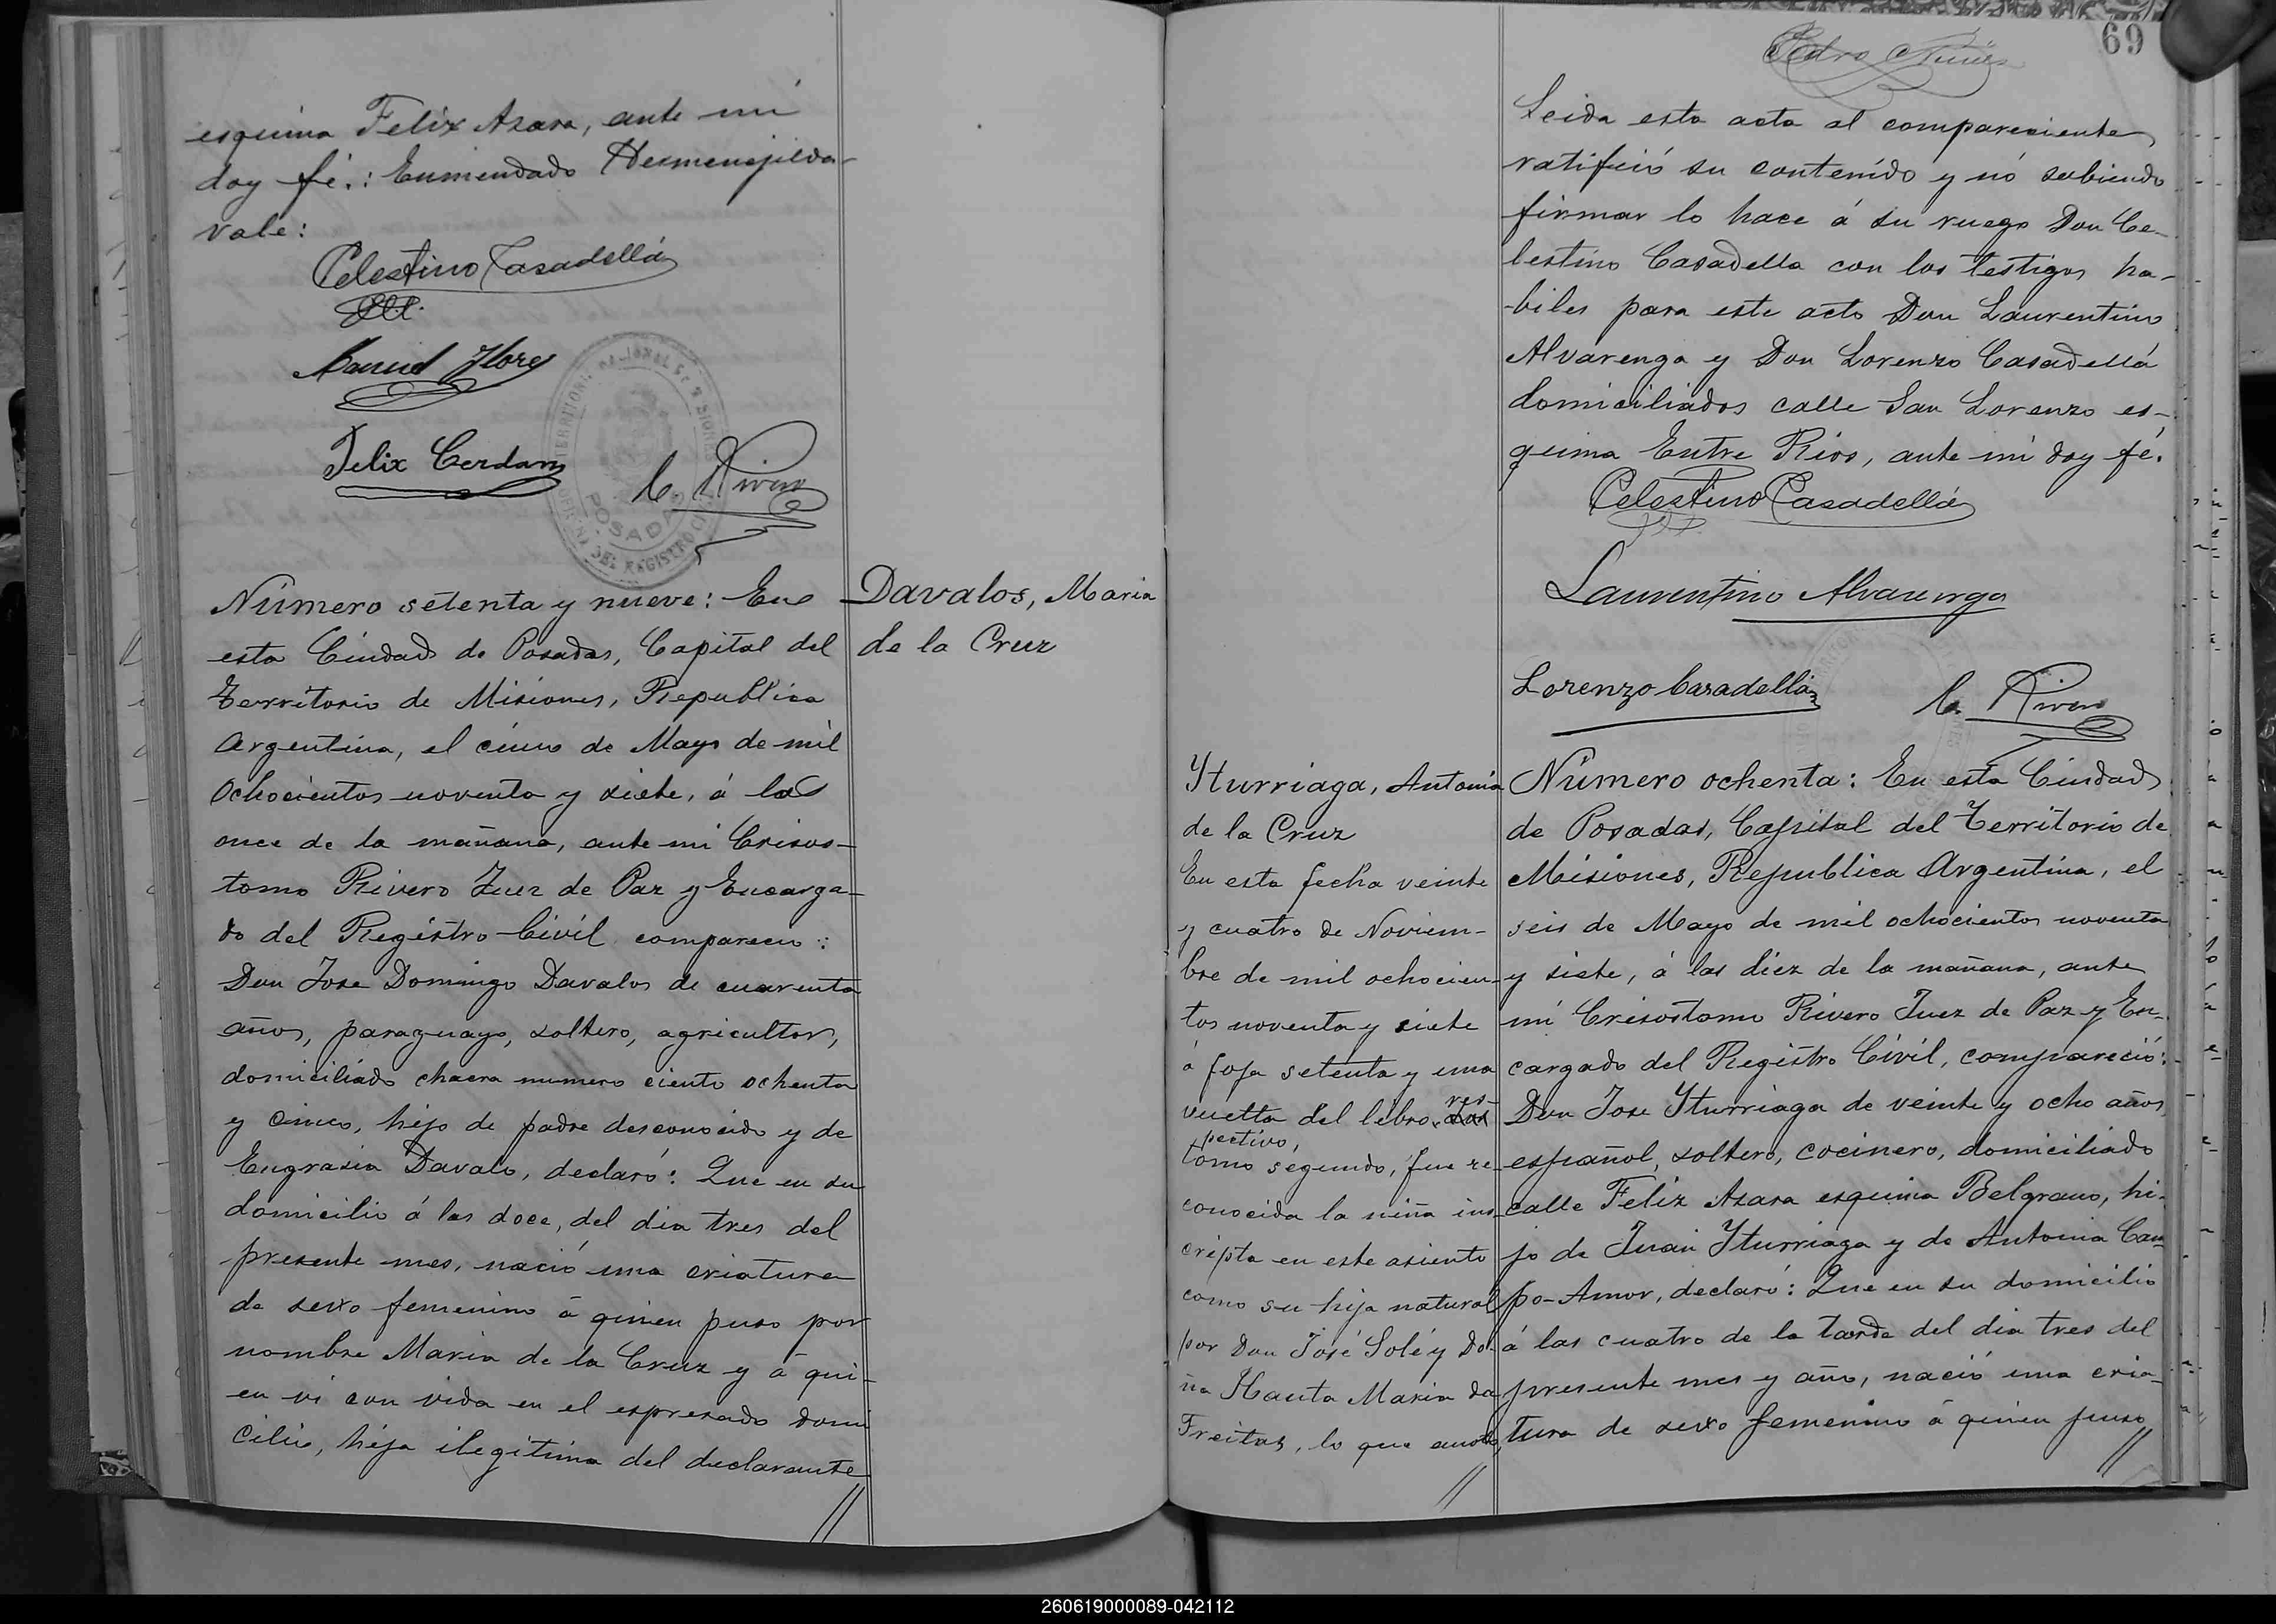 esquina Felix Azara, ante mi
doy fé.: Enmendado Hermenejilda
vale:
Celestino Casadellá
Manuel Flores
Felix Cerdan
C. Rivero
POSADAS
Número setenta y nueve: En
esta Ciudad de Posadas, Capital del
Territorio de Misiones, Republica
Argentina, el cinco de Mayo de mil
Ochocientos noventa y siete, á las
once de la mañana, ante mi Crisos-
tomo Rivero Juez de Paz y Encarga-
do del Registro Civil comparecio:
Don Jose Domingo Davalos de cuarenta
años, paraguayo, soltero, agricultor,
domiciliado chacra numero ciento ochenta
y cinco, hijo de padre desconocido y de
Engrasia Davalo, declaró: Que en su
domicilio á las doce, del dia tres del
presente mes, nació una criatura
de sexo femenino á quien puso por
nombre Maria de la Cruz y á qui-
en vi con vida en el espresado domi
cilio, hija ilegitima del declarante
//
Davalos, Maria
de la Cruz
69
Pedro Nuñes
Leida esta acta al compareciente
ratificó su contenído y nó sabiendo
firmar lo hace á su ruego Don Ce-
lestino Casadella con los testigos ha-
-biles para este acto Don Laurentino
Alvarenga y Don Lorenzo Casadellá
domiciliados calle San Lorenzo es-
quina Entre Rios, ante mi doy fé.
Celestino Casadellá
Laurentino Alvarenga
Lorenzo Casadellá
C. Rivero
Yturriaga, Antonia
de la Cruz
En esta fecha veinte
y cuatro de Noviem-
bre de mil ochocien-
tos noventa y siete
á foja setenta y una
vuelta del libro res-
pectivo,
tomo segundo, fue re-
conocida la niña ins-
cripta en este asiento
como su hija natural
por Don José Solé y Do-
ña Maria da
Freitas, lo que anoto,
//
Número ochenta: En esta Ciudad
de Posadas, Capital del Territorio de
Misiones, Republica Argentina, el
seis de Mayo de mil ochocientos noventa
y siete, á las diez de la mañana, ante
mi Crisostomo Rivero Juez de Paz y En-
cargado del Registro Civil, compareció:
Don Jose Yturriaga de veinte y ocho años
español, soltero, cocinero, domiciliado
calle Feliz Azara esquina Belgrano, hi-
jo de Juan Yturriaga y de Antonia Cam
po-Amor, declaró: Que en su domicilio
á las cuatro de la tarde del dia tres del
presente mes y año, nació una cria-
tura de sexo femenino á quien puso
//
260619000089-042112